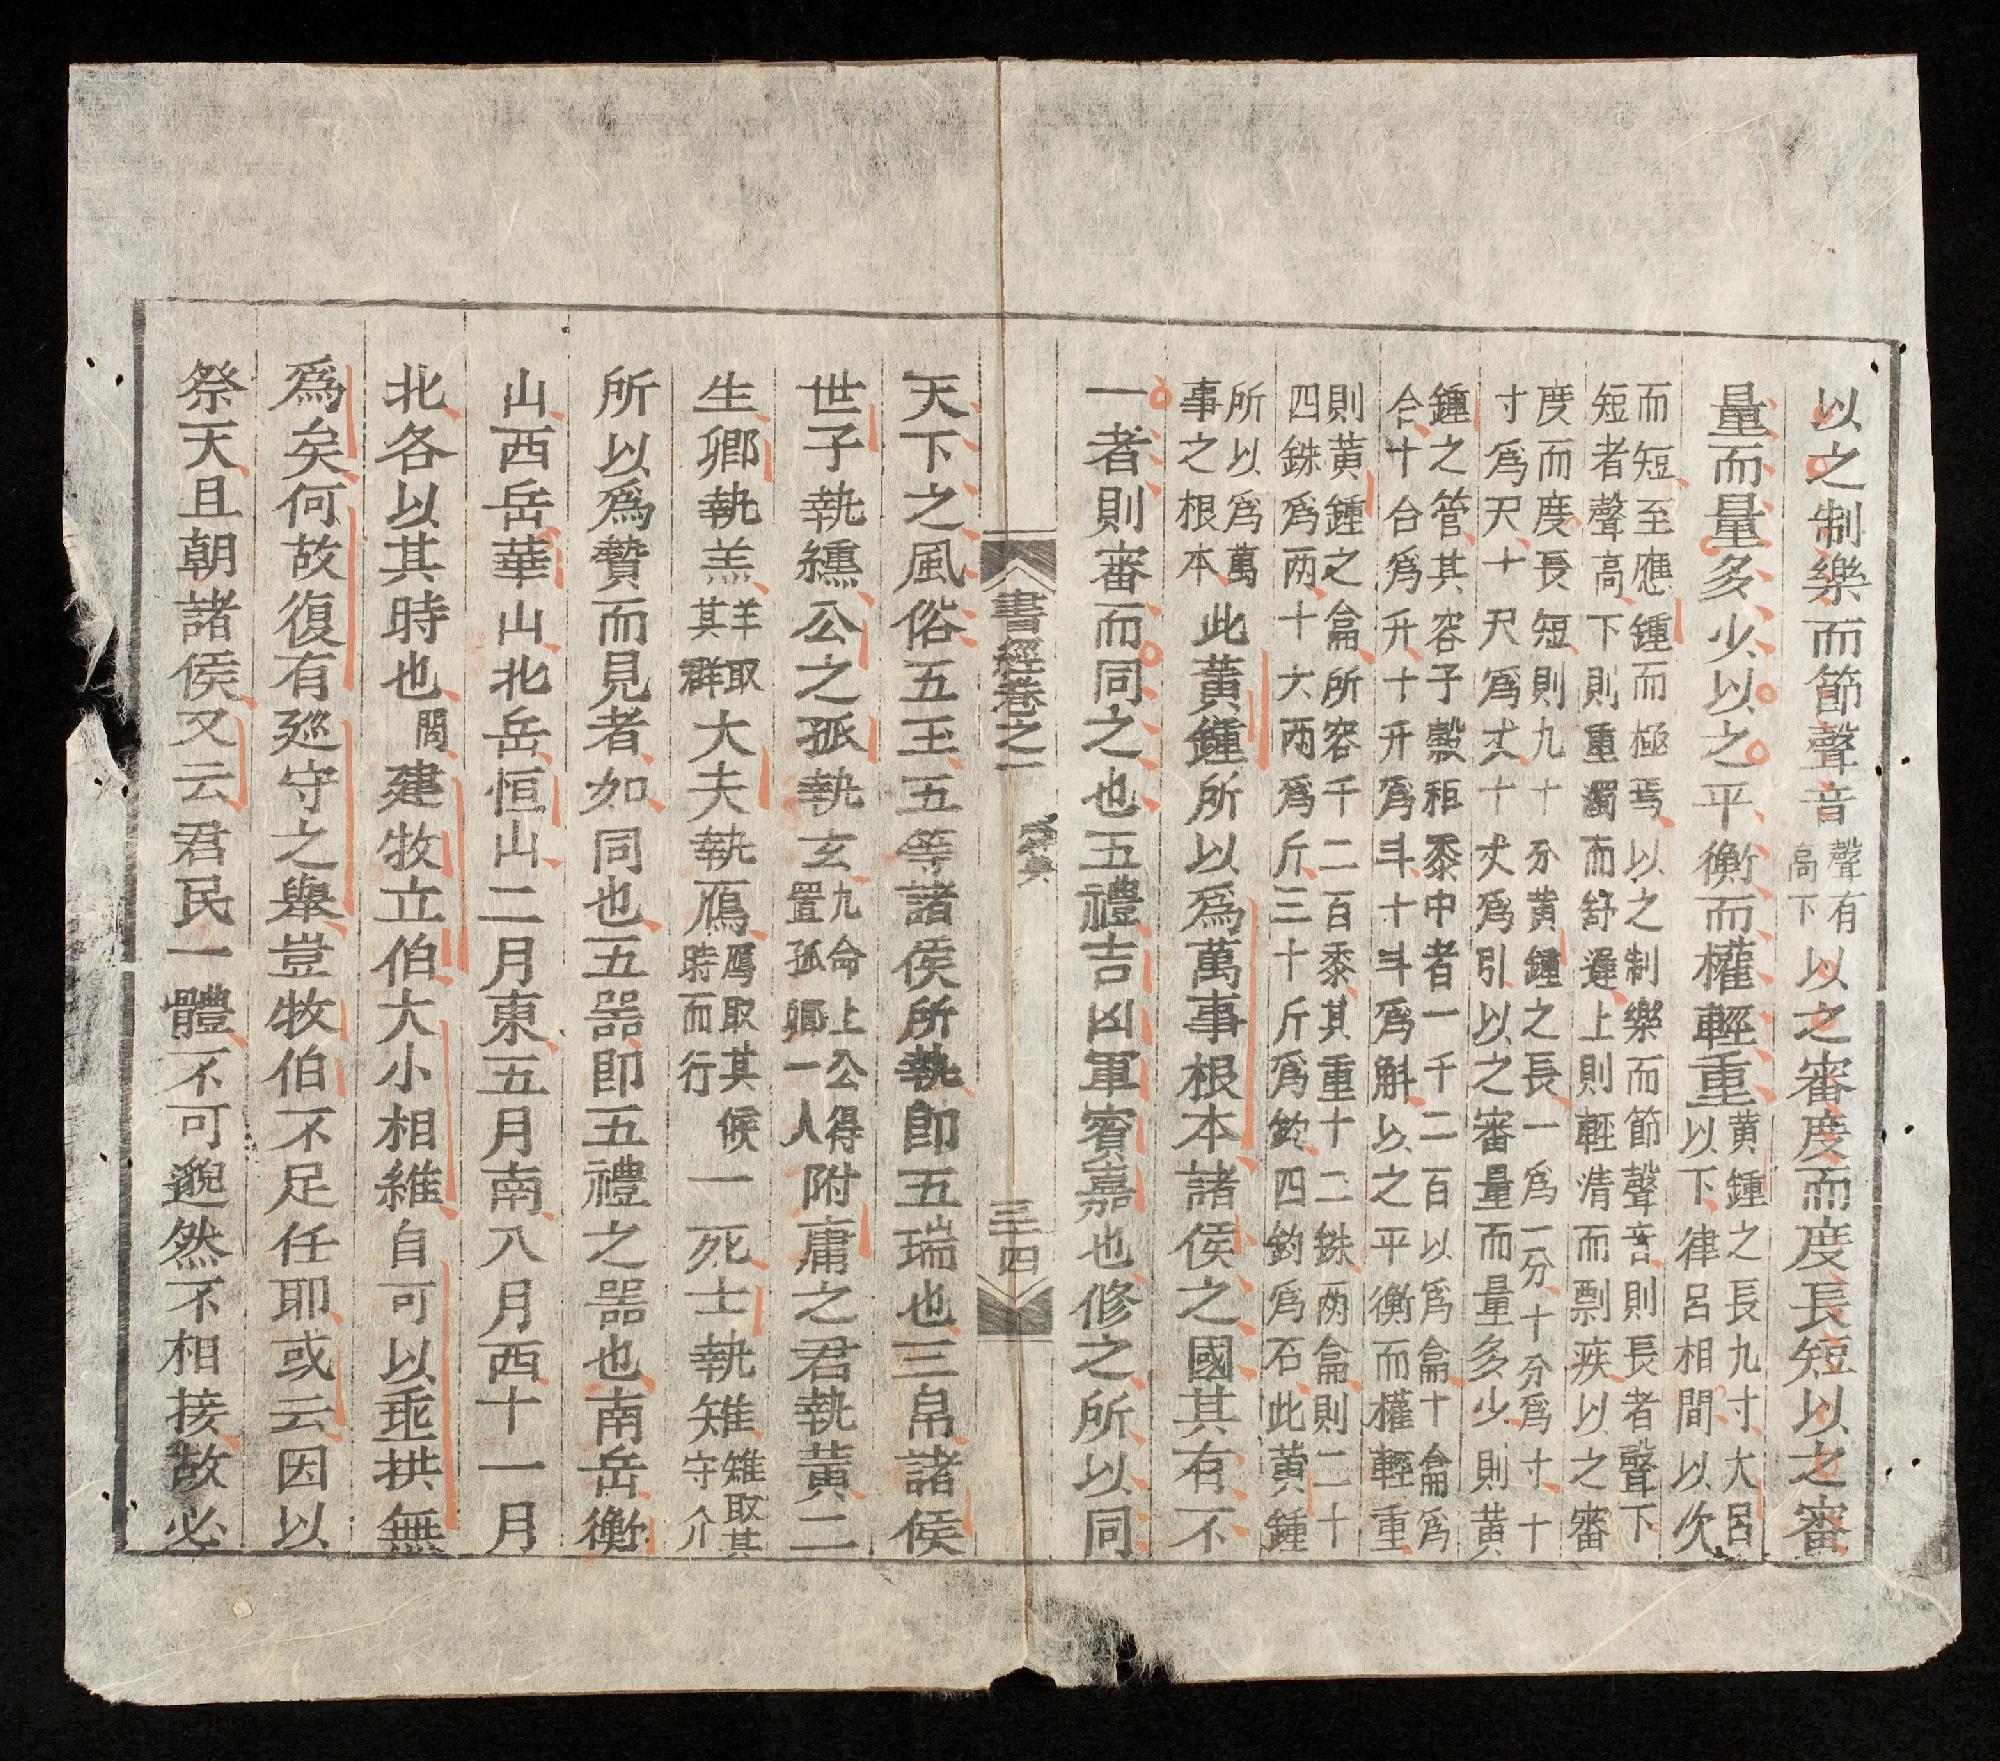 以之制樂而節聲音聲有高下以之審度而度長短以之審
量而量多少以之平衡而權輕重黄鍾之長九寸大呂以下律呂相間以次
而短至應鍾而極焉以之制樂而節聲音則長者聲下
短者聲高下則重濁而舒遲上則輕清而剽疾以之審
度而度長短則九十分黄鍾之長一爲一分十分爲寸十
寸爲尺十尺爲丈十丈爲引以之審量而量多少則黄
鍾之管其容子穀秬黍中者一千二百以爲龠十龠爲
合十合爲升十升爲斗十斗爲斛以之平衡而權輕重
則黄鍾之龠所容千二百黍其重十二銖兩龠則二十
四銖爲两十六兩爲斤三十斤爲鈞四鈞爲石此黄鍾
所以爲萬事之根本此黄鍾所以爲萬事根本諸侯之國其有不
一者則審而同之也五禮吉凶軍賓嘉也修之所以同
書經卷之一 三四
天下之風俗五玉五等諸侯所執即五瑞也三帛諸侯
世子執纁公之孤執玄九命上公得置孤卿一人附庸之君執黄二
生卿執羔羊取其群大夫執鴈鴈取其候時而行一死士執雉雉取其守介
所以爲贄而見者如同也五器即五禮之器也南岳衡
山西岳華山北岳恒山二月東五月南八月西十一月
北各以其時也問建牧立伯大小相維自可以垂拱無
爲矣何故復有廵守之舉豈牧伯不足任耶或云因以
祭天且朝諸侯又云君民一體不可邈然不相接故必